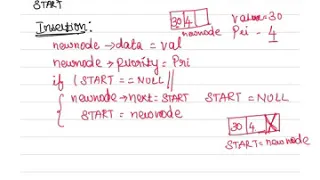 START
Insertion:
30 4
newnode
value=30
Pri - 4
newnode → data = val
newnode → priority = Pri
if (START == NULL ||
{ newnode → next = START
START = NULL
START = newnode
30 4 X
START = newnode